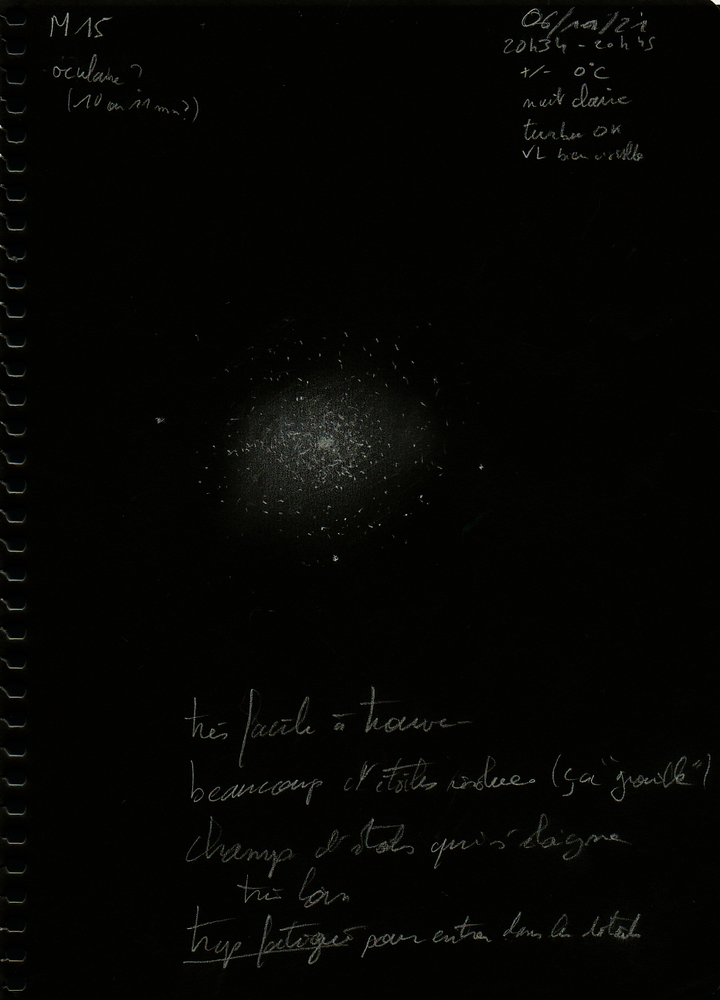 M 15
oculaire ?
(10 ou 11 mm ?)
06/10/21
20h34 - 20h45
+/- 0°C
nuit claire
turbu OK
VL bien visible
très facile à trouver
beaucoup d'étoiles résolues (ça "grouille")
champ d'étoiles qui s'éloigne
très loin
trop fatigué pour entrer dans les détails